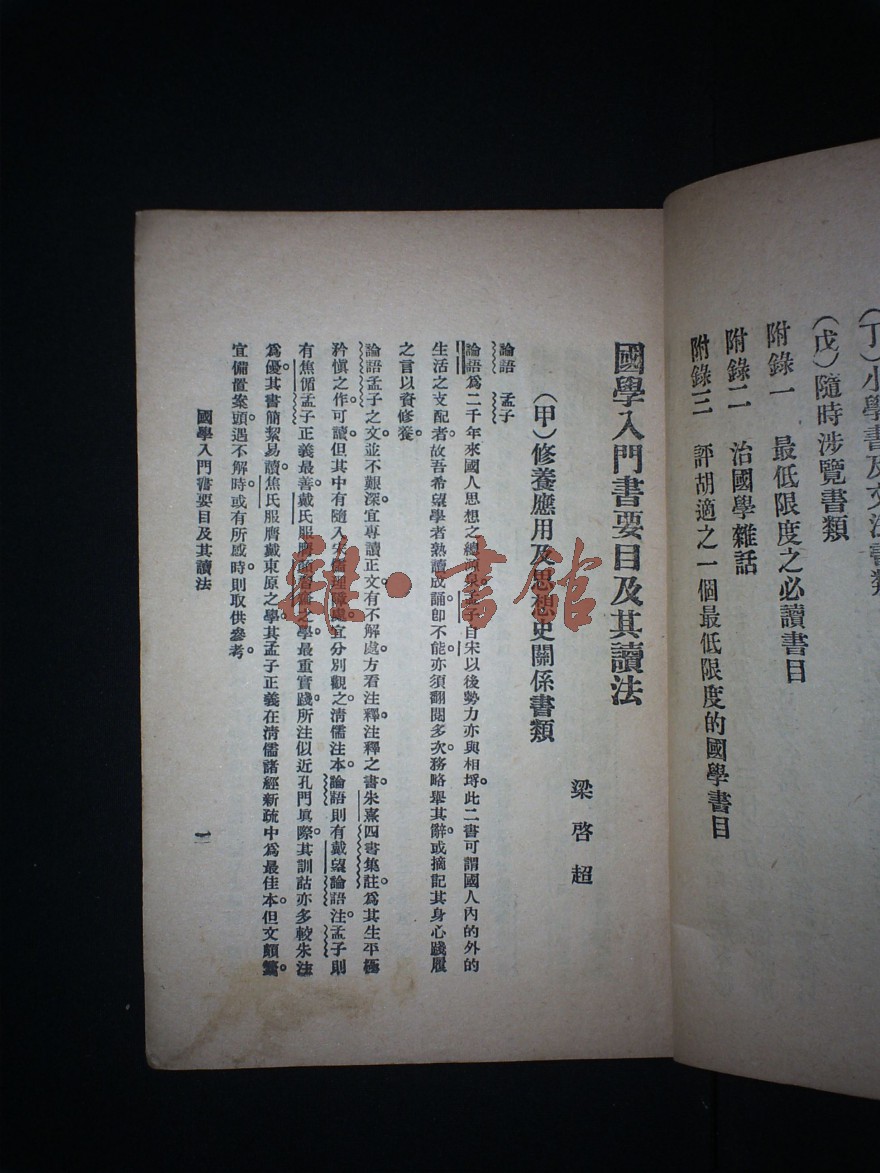 （丁）小學書及文法書類
（戊）隨時涉覽書類
附錄一　最低限度之必讀書目
附錄二　治國學雜話
附錄三　評胡適之一個最低限度的國學書目
國學入門書要目及其讀法
梁啓超
（甲）修養應用及思想史關係書類
論語　孟子
論語爲二千年來國人思想之總源泉。孟子自宋以後勢力亦與相埓。此二書可謂國人內的外的
生活之支配者。故吾希望學者熟讀成誦。卽不能。亦須翻閱多次。務略舉其辭。或摘記其身心踐履
之言以資修養。
論語孟子之文。並不艱深。宜專讀正文。有不解處。方看注釋。注釋之書。朱熹四書集註。爲其生平極
矜愼之作。可讀。但其中有墮入宋儒理障處。宜分別觀之。清儒注本。論語則有戴望論語注。孟子則
有焦循孟子正義最善。戴氏服膺顏習齋之學。最重實踐。所注似近孔門眞際。其訓詁亦多較朱注
爲優。其書簡絜易讀。焦氏服膺戴東原之學。其孟子正義在清儒諸經新疏中爲最佳本。但文頗繁。
宜備置案頭。遇不解時或有所感時。則取供參考。
國學入門書要目及其讀法
一
雜·書館